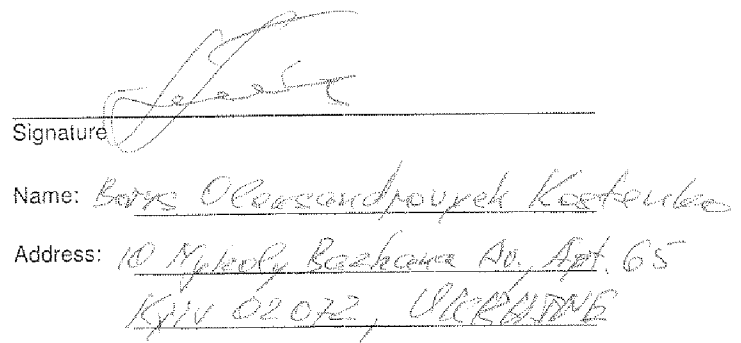 Signature
Name: Borys Olexsandrovych Kostenko
Address: 10 Mykoly Bazhana Av., Apt. 65
Kyiv 02072, UKRAINE